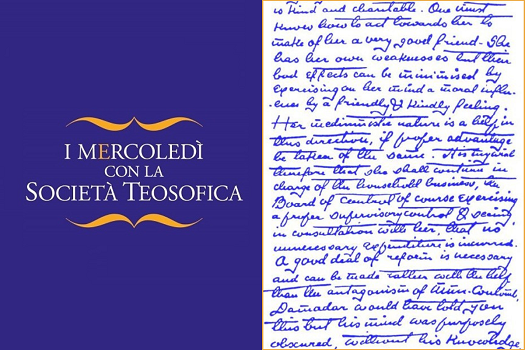 I MERCOLEDÌ
CON LA
SOCIETÀ TEOSOFICA
is kind and charitable. One must
know how to act towards her to
make of her a very good friend. She
has her own weaknesses but their
bad effects can be minimised by
exercising on her mind a moral influ-
ence by a friendly & kindly feeling.
Her mediumistic nature is a help in
this direction, if proper advantage
be taken of the same. It is my wish
therefore that she shall continue in
charge of the household business, the
Board of Control of course exercising
a proper supervisory control & seeing
in consultation with her, that no
unnecessary expenditure is incurred.
A good deal of reform is necessary
and can be made rather with the help
than the antagonism of Mme. Coulomb.
Damodar would have told you
this but his mind was purposely
obscured, without his knowledge